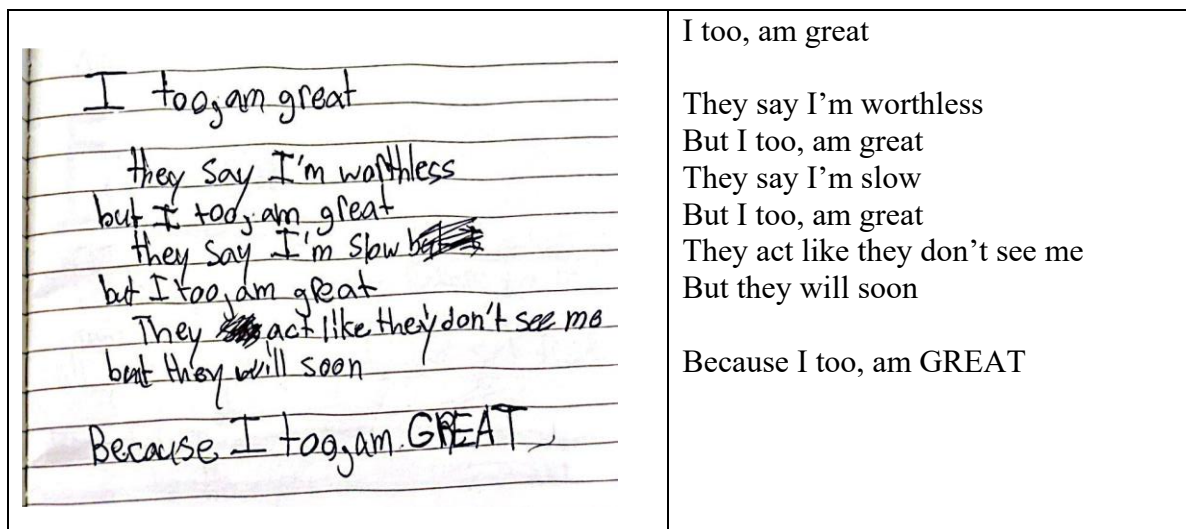 I too, am great
they say I'm worthless
but I too, am great
they say I'm slow
but I too, am great
They act like they don't see me
but they will soon
Because I too, am GREAT
I too, am great
They say I'm worthless
But I too, am great
They say I'm slow
But I too, am great
They act like they don't see me
But they will soon
Because I too, am GREAT